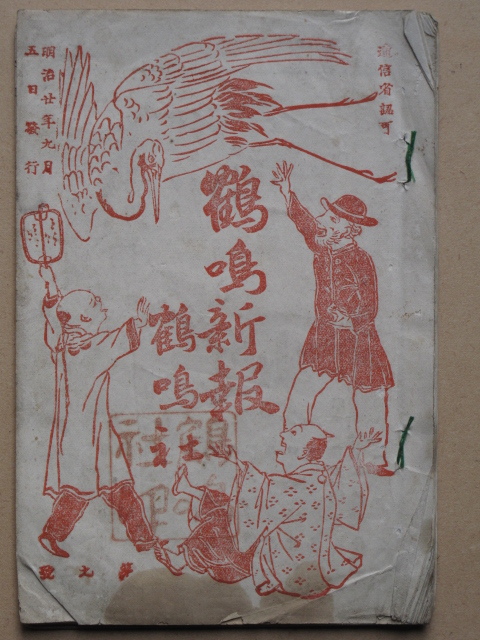 逓信省認可
鶴鳴新報
鶴鳴社
明治廿年九月
五日発行
第九号